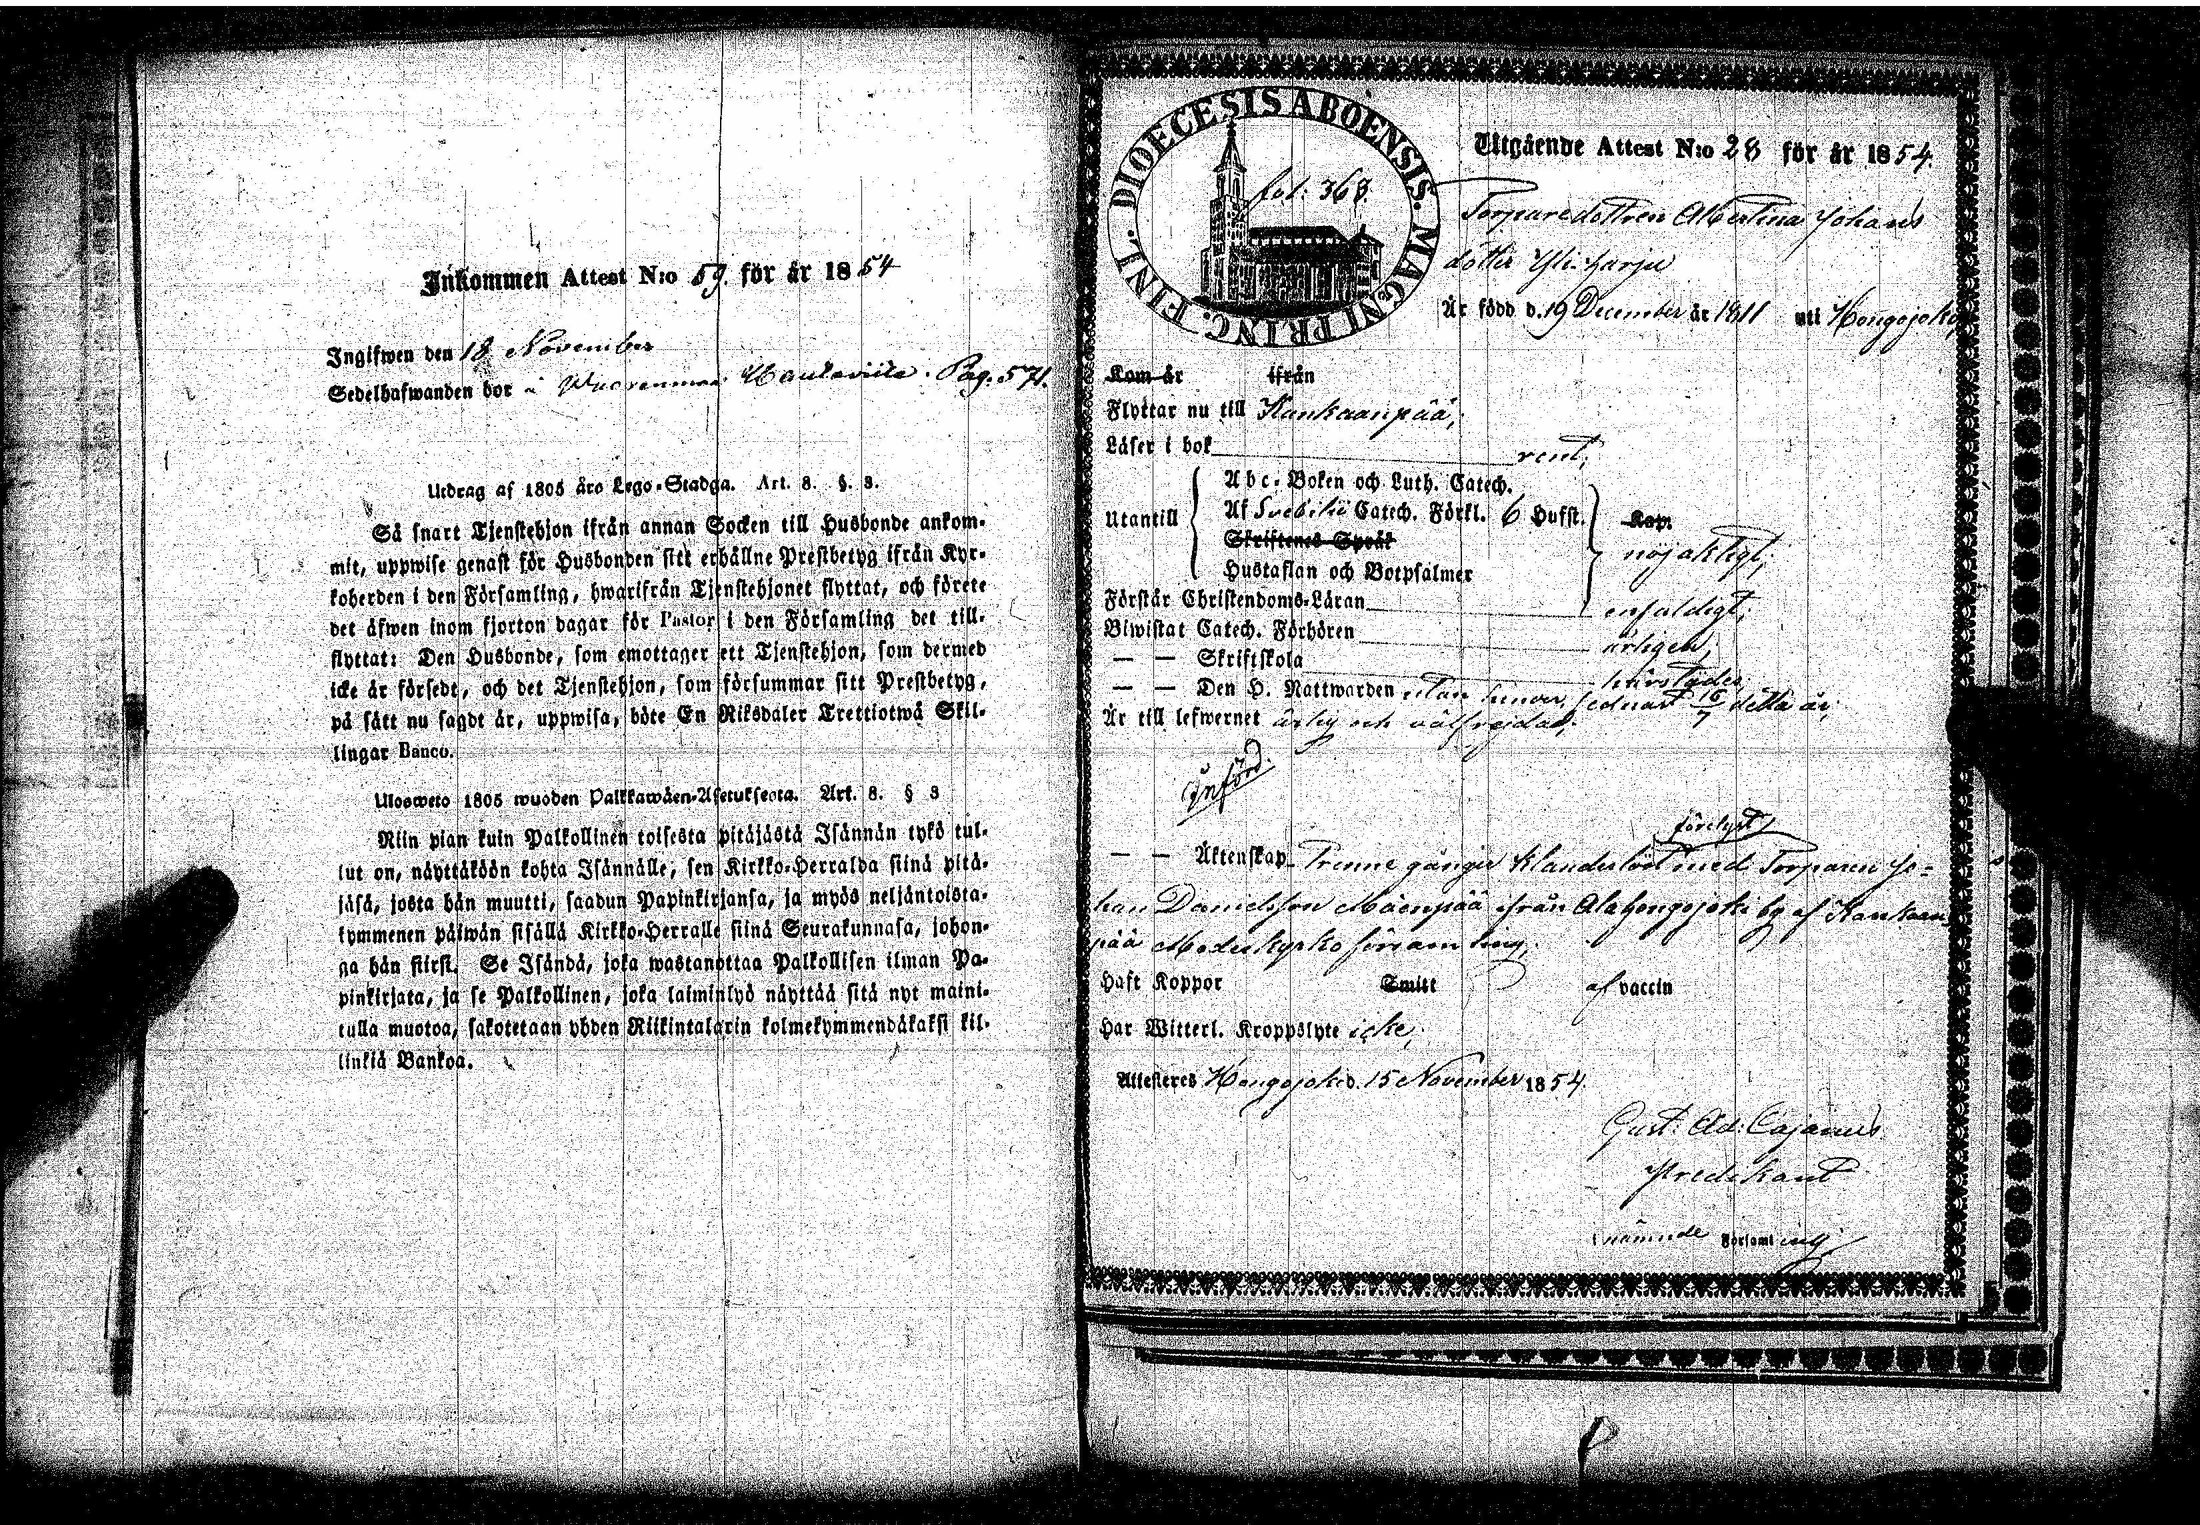 Inkommen Attest N:o 59. för år 1854
Ingifwen den 18 November
Sedelhafwanden bor å Wuorenmaa Pag. 571.
Utdrag af 1805 års Lego-Stadga. Art. 8. §. 3.
Så snart Tjenstehjon ifrån annan Socken till Husbonde ankom-
mit, uppwise genast för Husbonden sitt erhållne Prestbetyg ifrån Kyr-
koherden i den Församling, hwarifrån Tjenstehjonet flyttat, och förete
det äfwen inom fjorton dagar för Pastor i den Församling det till-
flyttat: Den Husbonde, som emottager ett Tjenstehjon, som dermed
icke är försedt, och det Tjenstehjon, som försummar sitt Prestbetyg,
på sätt nu sagdt är, uppwisa, böte En Riksdaler Trettiotwå Skil-
lingar Banco.
Ulosweto 1805 wuoden Palkkawäen-Asetuksesta. Art. 8. § 3
Niin pian kuin Palkollinen toisesta pitäjästä Isännän tykö tul-
lut on, näyttäköön kohta Isännälle, sen Kirkko-Herralda siinä pitä-
jäsä, josta hän muutti, saadun Papinkirjansa, ja myös neljäntoista-
kymmenen päiwän sisällä Kirkko-Herralle siinä Seurakunnasa, johon-
ga hän siirsi. Se Isändä, joka wastanottaa Palkollisen ilman Pa-
pinkirjata, ja se Palkollinen, joka laiminlyö näyttää sitä nyt maini-
tulla muotoa, sakotetaan yhden Riikintalarin kolmekymmendäkaksi kil-
linkiä Bankoa.
DIOECESIS ABOENSIS. MAGNI PRINC. FINL.
fol: 368.
Utgående Attest N:o 28 för år 1854.
Torparedottren Albertina Johans
dotter Yli-harju
Är född d. 19 December år 1811 uti Hongojoki,
Kom år ifrån
Flyttar nu till Kankaanpää,
Läser i bok rent,
Utantill
Abc-Boken och Luth. Catech.
Af Svebilii Catech. Förkl. 6 Hufst.
Skriftenes Språk
Hustaflan och Botpsalmer
Kap.
nöjaktigt;
Förstår Christendoms-Läran enfaldigt;
Biwistat Catech. Förhören årligen;
— — Skriftskola
— — Den H. Nattwarden utan hinder, sednast d 16/7 detta år;
Är till lefwernet ärlig och välfrejdad;
Införd.
förelyst
— — Äktenskap Trenne gånger klanderlöst med Torparen Jo=
han Danielsson Mäenpää ifrån Ala Hongojoki by af Kankaan
pää Moderkyrko församling;
Haft Koppor Smitt af vaccin
Har Witterl. Kroppslyte icke;
Attesteres Hongojoki d. 15 November 1854.
Gust: Ad: Cajanus
Predikant
i nämnde Församling;